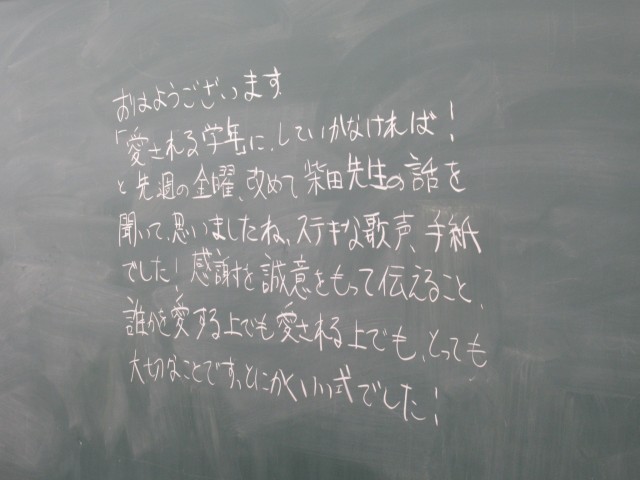 おはようございます
「愛される学年に、していかなければ!
と先週の金曜、改めて柴田先生の話を
聞いて、思いましたね。ステキな歌声、手紙
でした!感謝を誠意をもって伝えること、
誰かを愛する上でも愛される上でも、とっても
大切なことです。とにかくいい式でした!